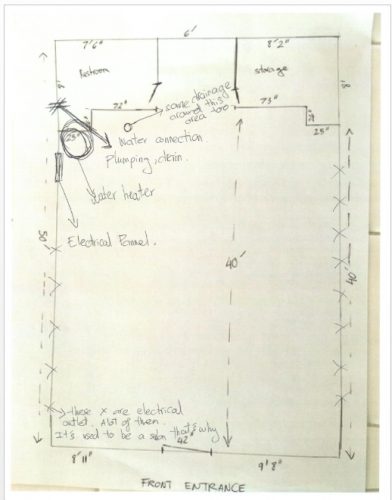 6'
7'6"
8'2"
Restroom
storage
8'
72"
some drainage
around this
area too
73"
25"
23"
Water connection
Plumping, drain.
Water heater
Electrical Pannel.
50'
40'
40'
these X are electrical
outlet. A lot of them.
It's used to be a salon that's why
42"
8' 11"
9' 8"
FRONT ENTRANCE